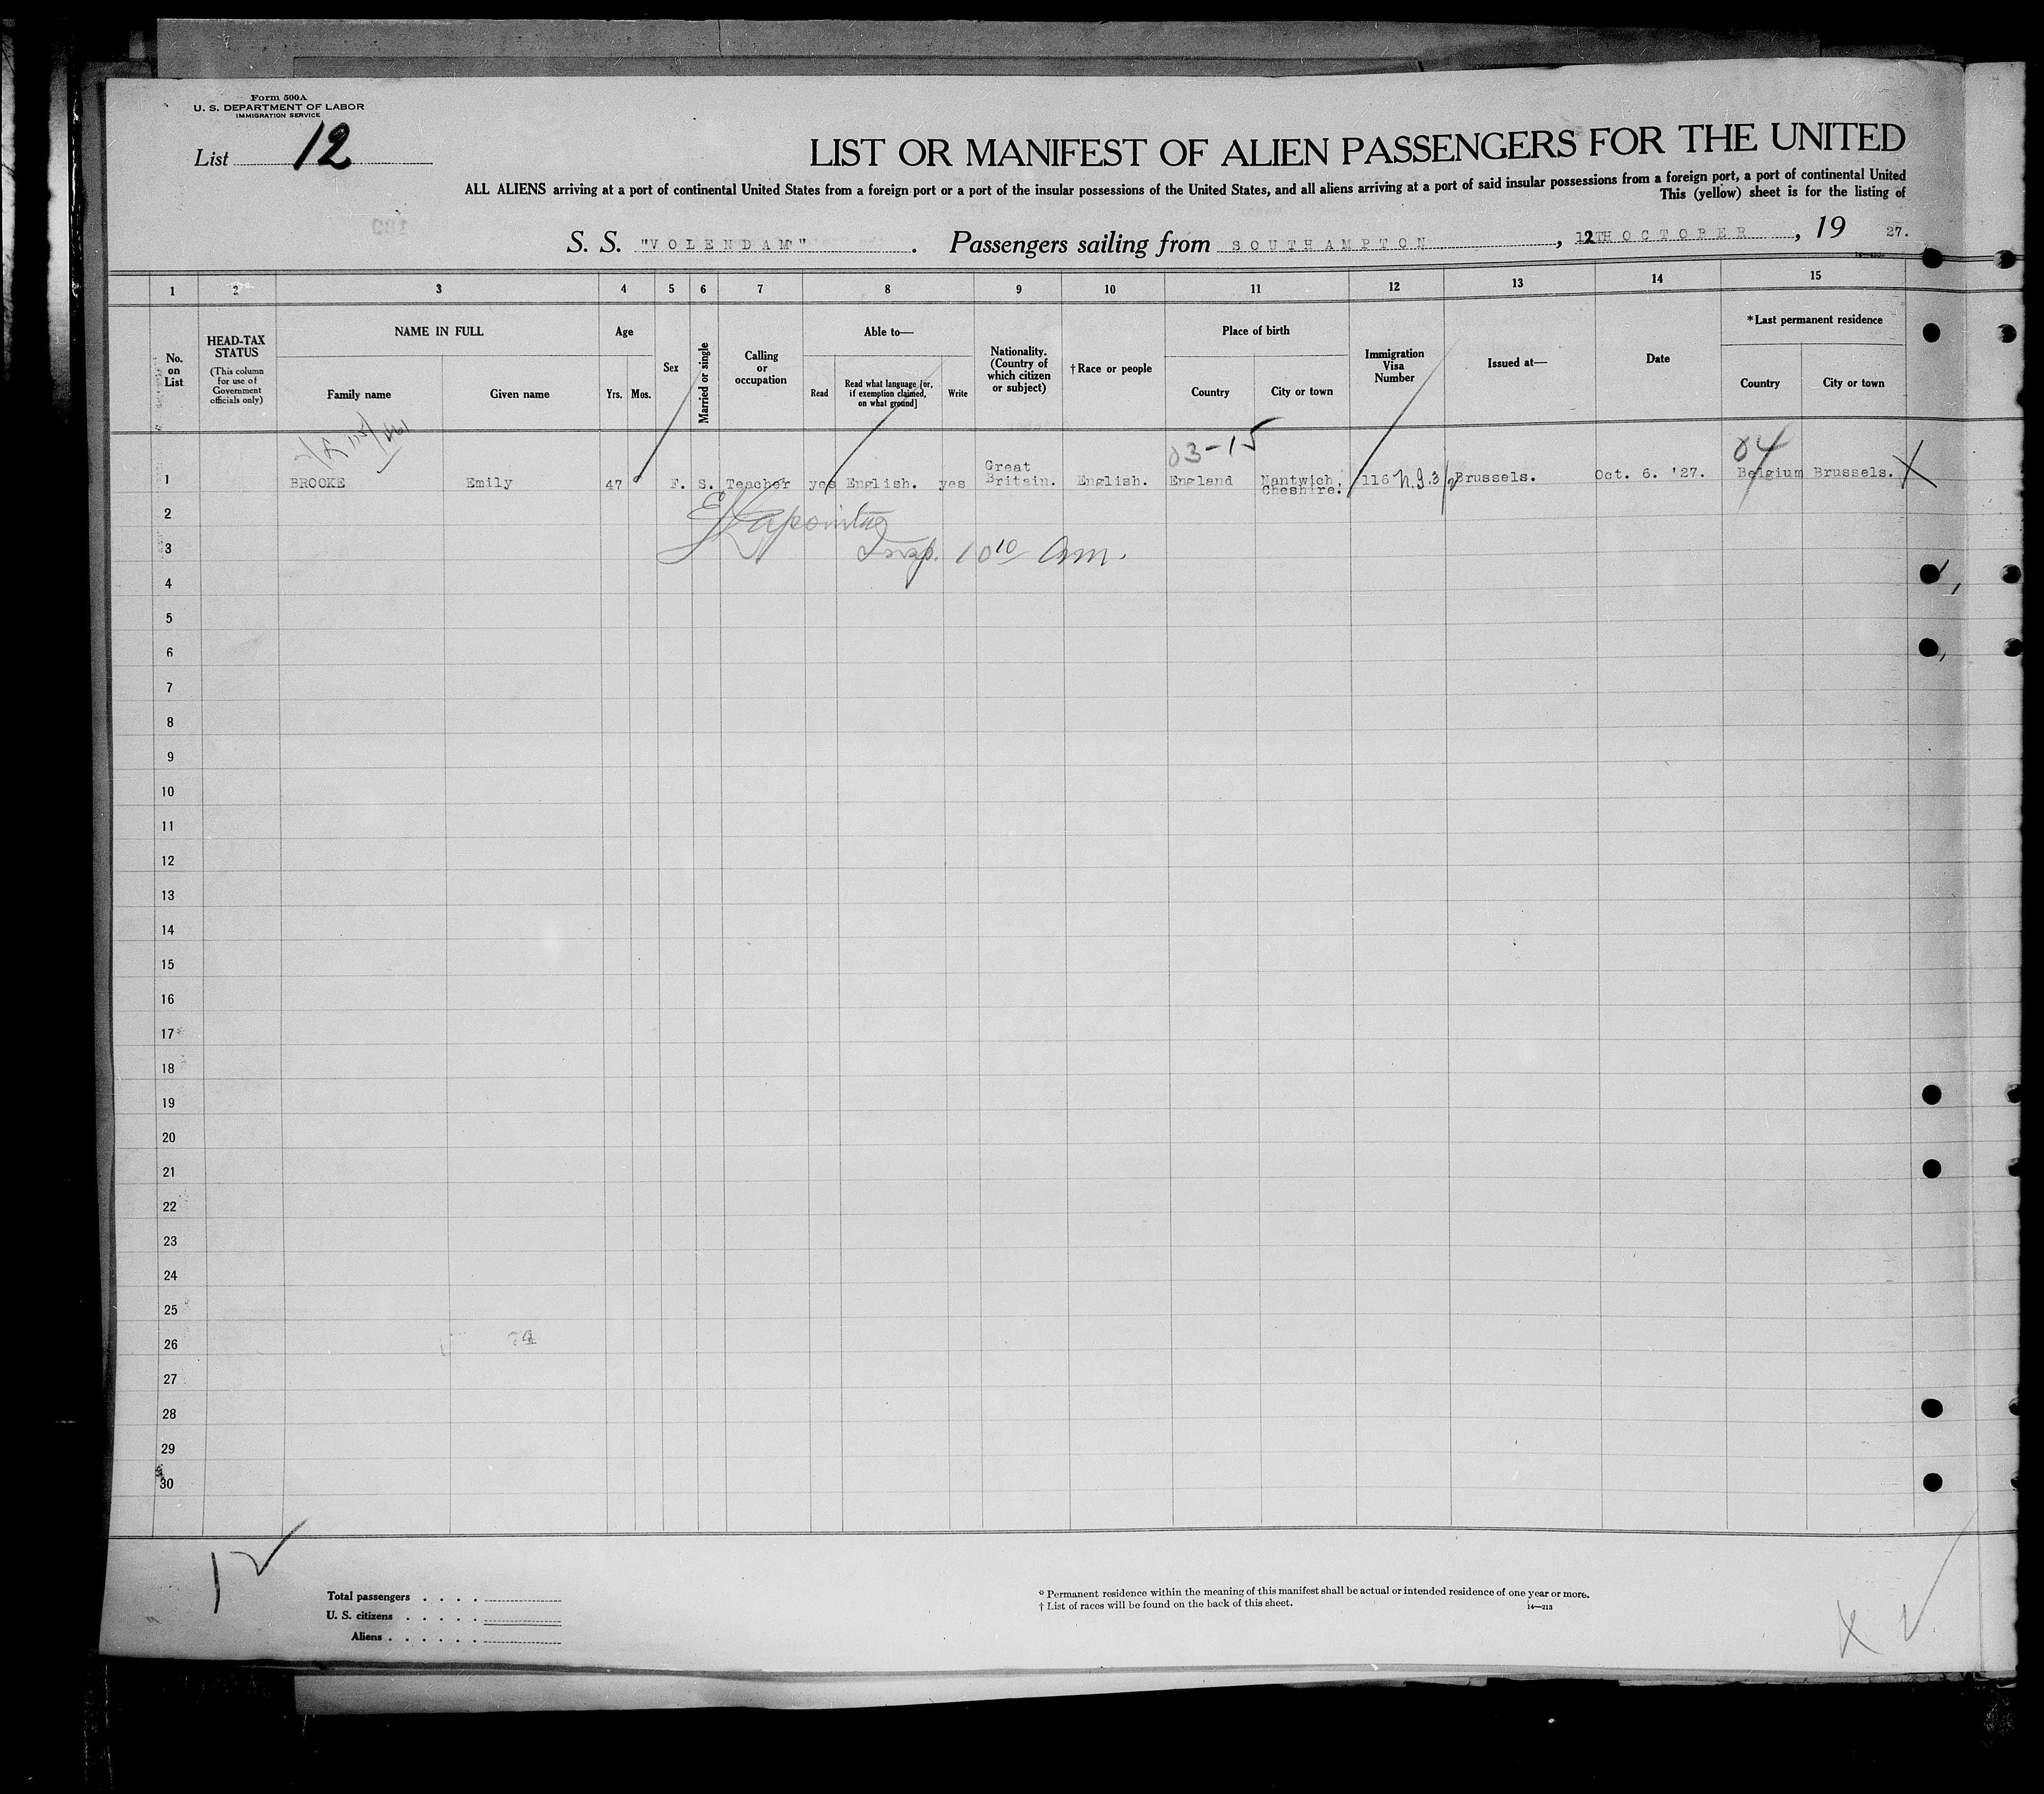 Form 500A
U. S. DEPARTMENT OF LABOR
IMMIGRATION SERVICE
List 12
LIST OR MANIFEST OF ALIEN PASSENGERS FOR THE UNITED
ALL ALIENS arriving at a port of continental United States from a foreign port or a port of the insular possessions of the United States, and all aliens arriving at a port of said insular possessions from a foreign port, a port of continental United
This (yellow) sheet is for the listing of
S. S. "VOLENDAM". Passengers sailing from SOUTHAMPTON, 12TH OCTOBER, 19 27.
1 2 3 4 5 6 7 8 9 10 11 12 13 14 15
No. on List
HEAD-TAX STATUS
(This column for use of Government officials only)
NAME IN FULL
Family name
Given name
Age
Yrs.
Mos.
Sex
Married or single
Calling or occupation
Able to—
Read
Read what language [or, if exemption claimed, on what ground]
Write
Nationality. (Country of which citizen or subject)
†Race or people
Place of birth
Country
City or town
Immigration Visa Number
Issued at—
Date
*Last permanent residence
Country
City or town
03-15
04
1 BROOKE Emily 47 F. S. Teacher yes English. yes Great Britain. English. England Nantwich, Cheshire. 116 Brussels. Oct. 6. '27. Belgium Brussels.
2
3 Insp. 10 10 am.
4
5
6
7
8
9
10
11
12
13
14
15
16
17
18
19
20
21
22
23
24
25
26
27
28
29
30
Total passengers . . . .
U. S. citizens . . . . .
Aliens . . . . . .
* Permanent residence within the meaning of this manifest shall be actual or intended residence of one year or more.
† List of races will be found on the back of this sheet.
14—213